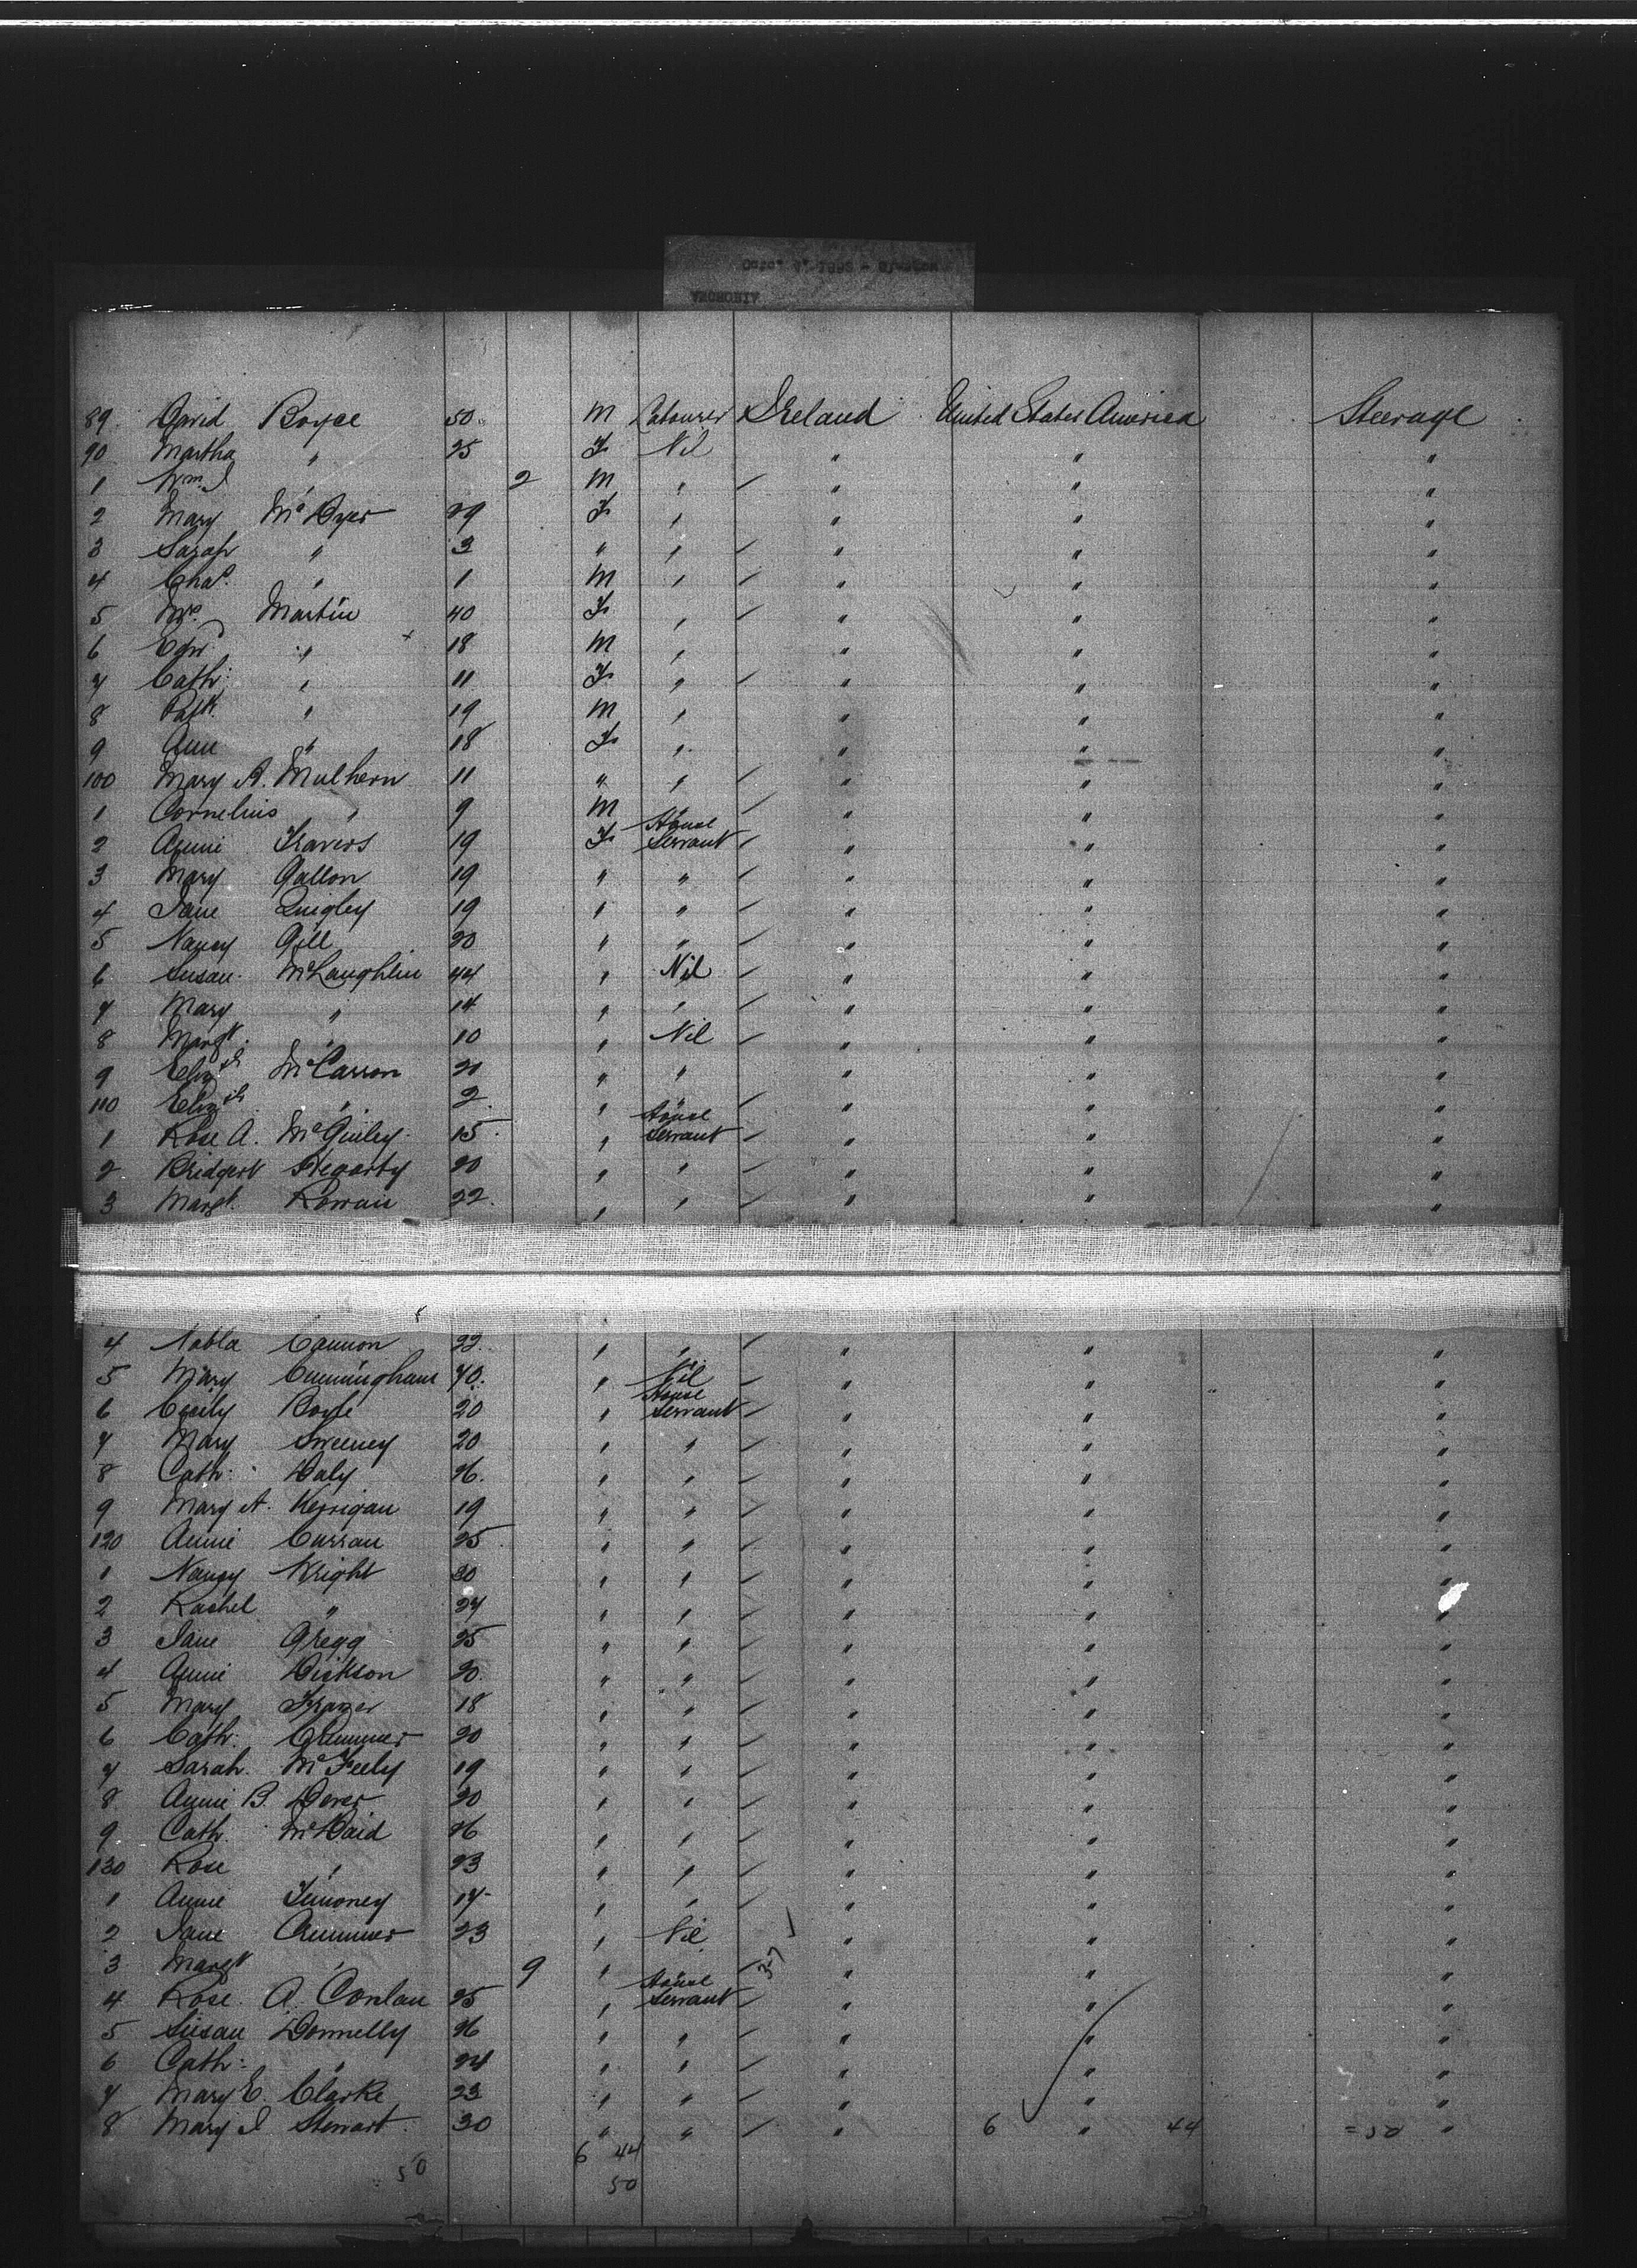 89. David Boyce 50 M Labourer Ireland United States America Steerage
90 Martha " 25 F Nil " " "
1 Wm. J " 2 M " " " "
2 Mary McDyer 29 F " " " "
3 Sarah " 3 " " " " "
4 Chas. " 1 M " " " "
5 Mrs. Martin 40 F " " " "
6 Edw. " 18 M " " " "
7 Cath. " 11 F " " " "
8 Patk. " 19 M " " " "
9 Ann " 18 F " " " "
100 Mary A. Mulhern 11 " " " " "
1 Cornelius " 9 M " " " "
2 Annie Travers 19 F House Servant " " "
3 Mary Gallon 19 " " " " "
4 Jane Quigley 19 " " " " "
5 Nancy Gill 20 " " " " "
6 Susan McLaughlin 44 " Nil " " "
7 Mary " 14 " " " " "
8 Margt. " 10 " Nil " " "
9 Elizth McCarron 21 " " " " "
110 Elizth " 2 " " " " "
1 Rose A. McGinley 15 " House Servant " " "
2 Bridget Hegarty 20 " " " " "
3 Margt. Rowan 22 " " " " "
4 Nabla Cannon 22 " " " " "
5 Mary Cunningham 40 " Nil " " "
6 Cecily Boyle 20 " House Servant " " "
7 Mary Sweeney 20 " " " " "
8 Cath. Daly 26 " " " " "
9 Mary A. Kerrigan 19 " " " " "
120 Annie Curran 25 " " " " "
1 Nancy Wright 30 " " " " "
2 Rachel " 24 " " " " "
3 Jane Gregg 25 " " " " "
4 Annie Dickson 20 " " " " "
5 Mary Frazer 18 " " " " "
6 Cath. Crummer 20 " " " " "
7 Sarah McFeely 19 " " " " "
8 Annie B. Dever 20 " " " " "
9 Cath. McDaid 26 " " " " "
130 Rose " 23 " " " " "
1 Annie Timoney 17 " " " " "
2 Jane Crummer 23 " Nil " " "
3 Margt " 9 " " " "
4 Rose A. Conlan 25 " House Servant " " "
5 Susan Donnelly 26 " " " " "
6 Cath. " 24 " " " " "
7 Mary E. Clarke 23 " " " " "
8 Mary J Stewart 30 " " " 6 " 44 = 50 "
50 6 44
50